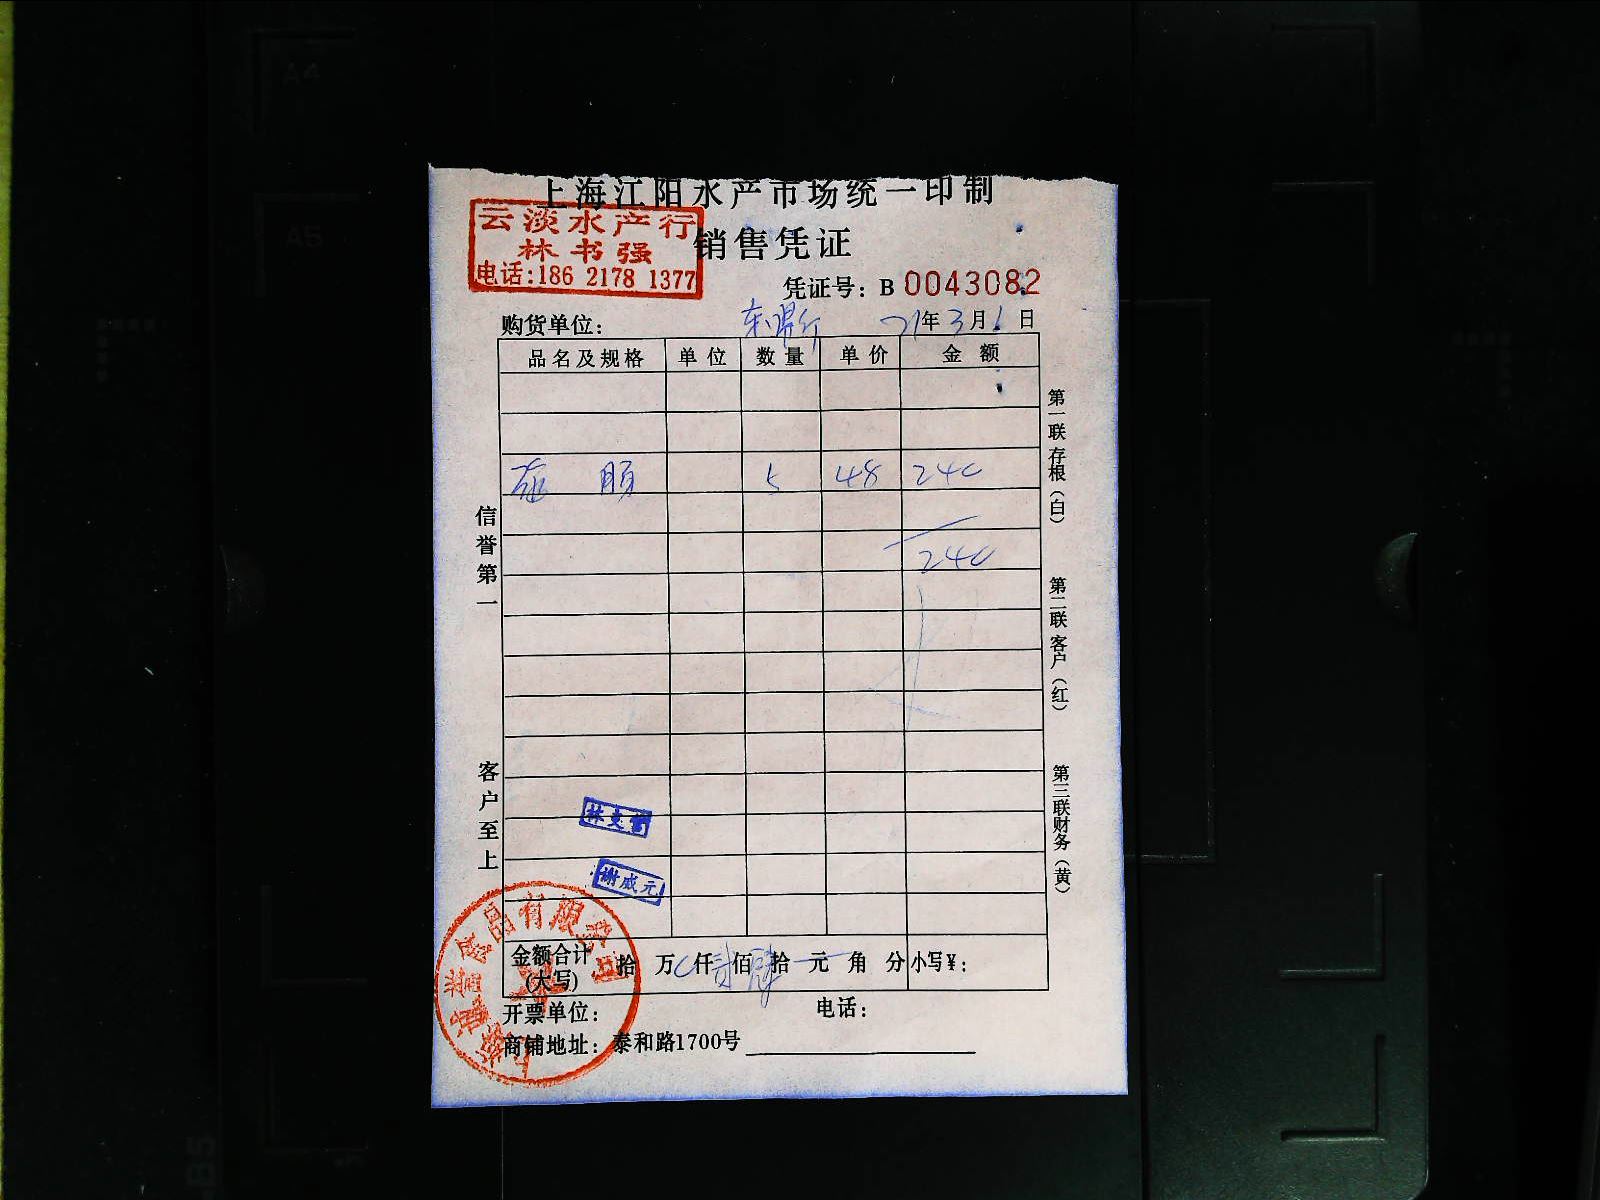 A4
A5
B5
上海江阳水产市场统一印制
云淡水产行
林书强
电话:186 2178 1377
销售凭证
凭证号: B 0043082
购货单位:
21年3月1日
品名及规格 单位 数量 单价 金额
5 48 240
240
信誉第一
客户至上
第一联存根(白)
第二联客户(红)
第三联财务(黄)
谢成元
食品有限公司
金额合计(大写) 拾 万 仟 贰佰 肆拾 元 角 分 小写¥:
开票单位: 电话:
商铺地址: 泰和路1700号